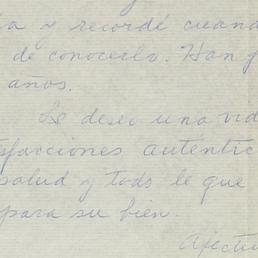 a y recordé cuand
de conocerlo. Han p
años.
Le deseo una vid
sfacciones autentic
salud y todo le que
para su bien.
Afectu